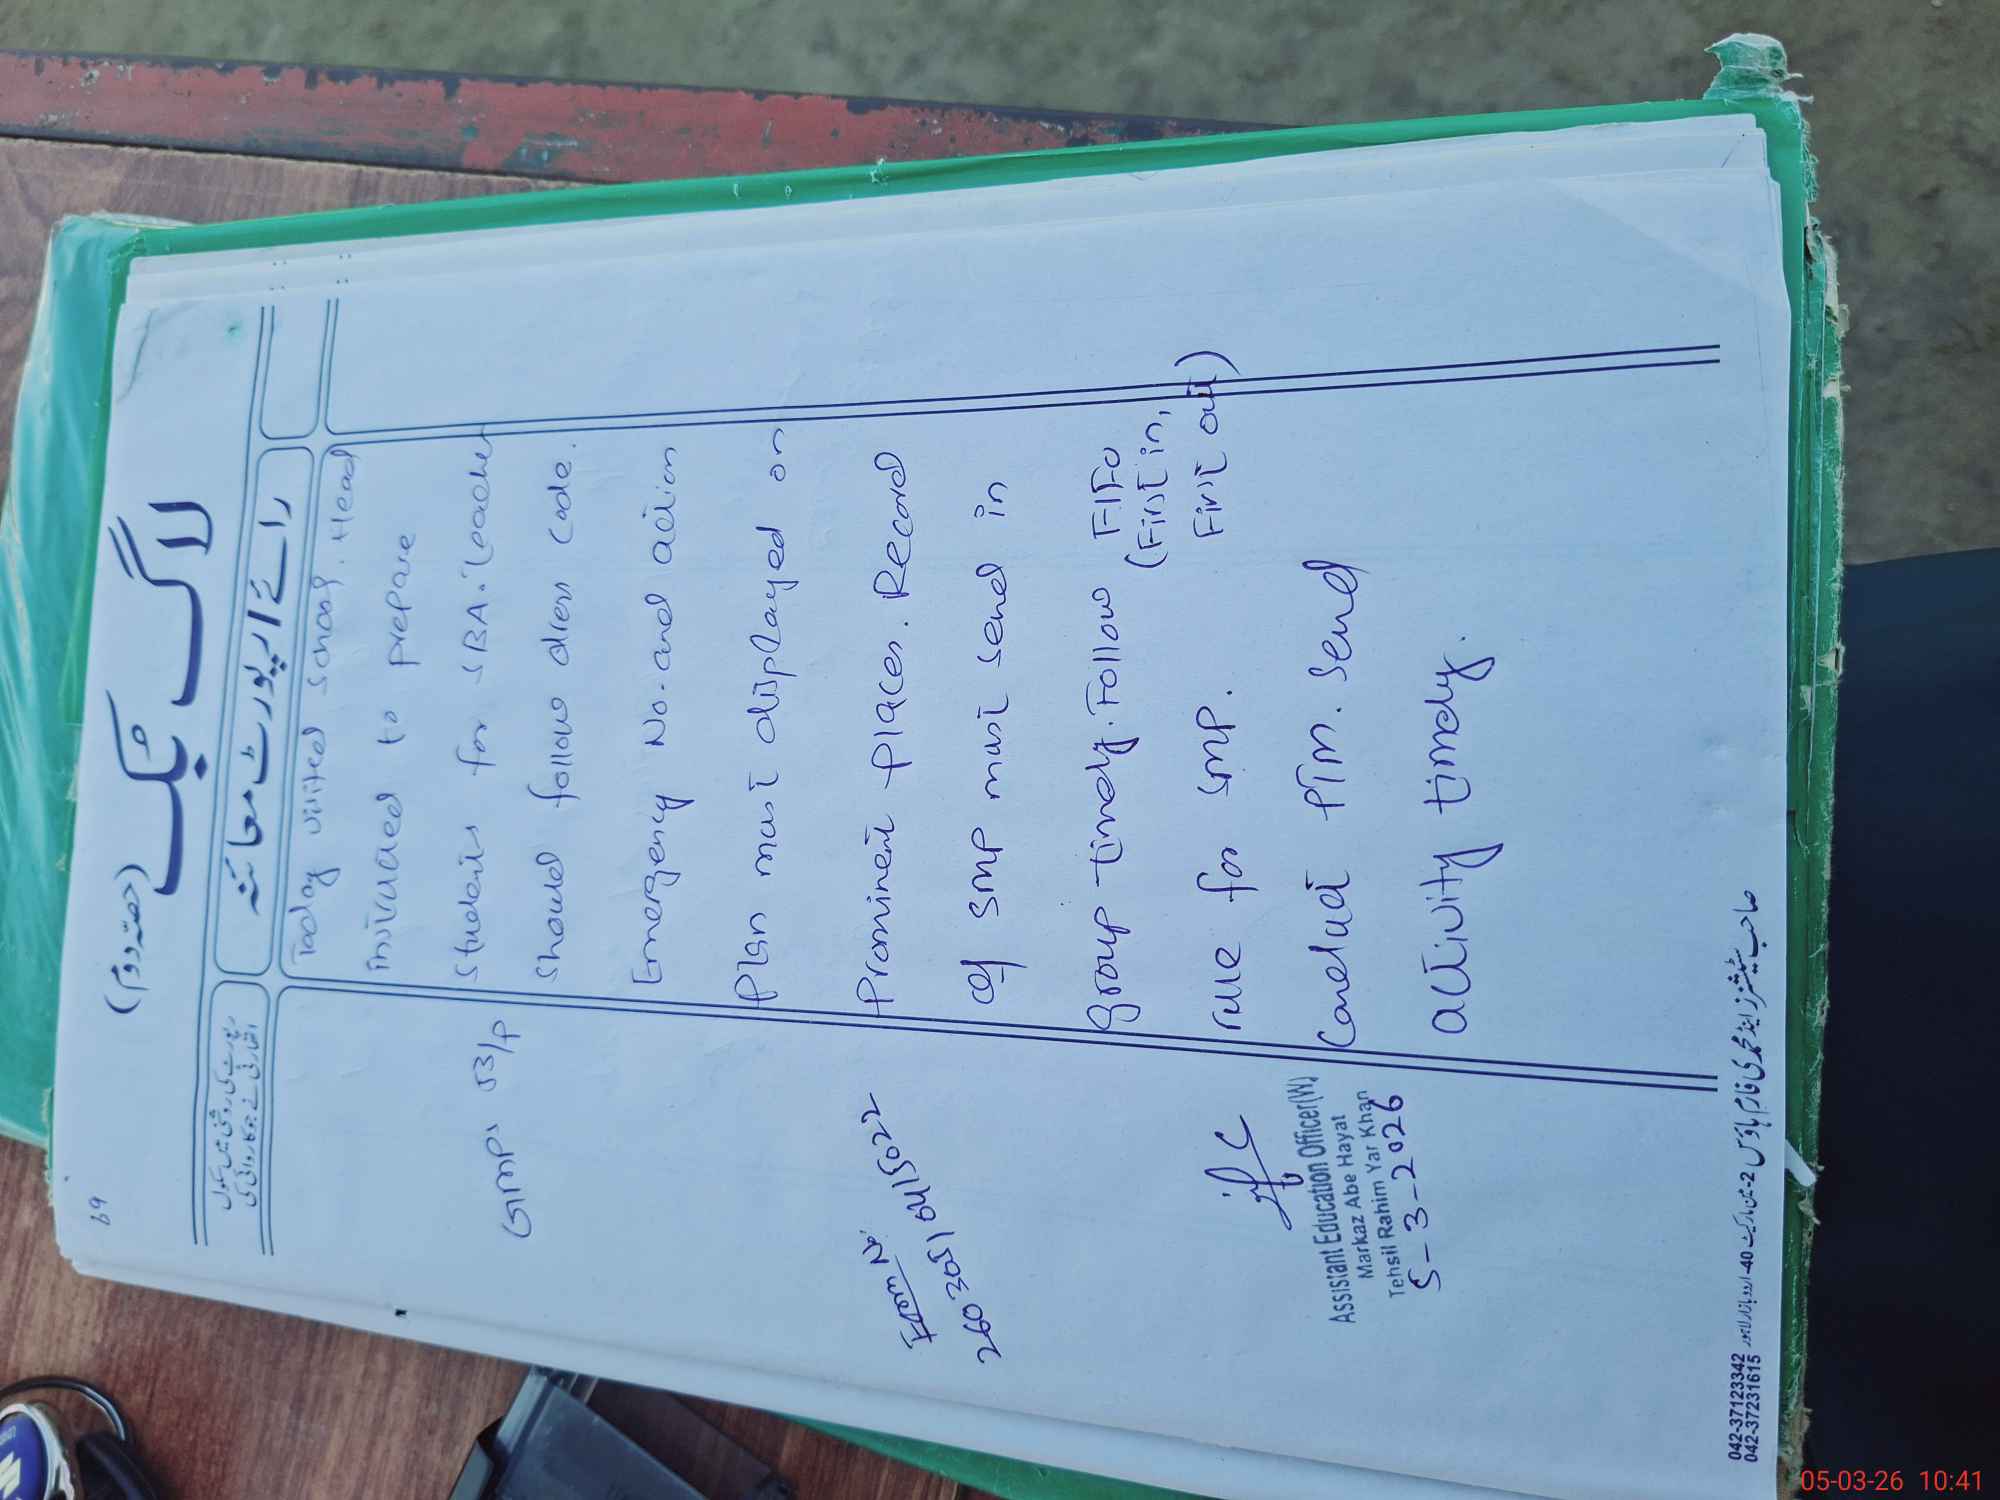 69
(حصہ دوم)
لاگ بک
رپورٹ کی روشنی میں سکول
اتھارٹی نے جو کارروائی کی
رائے / رپورٹ معائنہ
Today visited school. Head
instructed to prepare
students for SBA. Teacher
should follow dress code.
Emergency No. and action
plan must displayed on
Prominent places. Record
of SMP must send in
group timely. Follow FIFO
(First in,
First out)
rule for SMP.
Conduct PTM. Send
activity timely.
GMPS 53/P
Form No.
260305104115022
Assistant Education Officer(W)
Markaz Abe Hayat
Tehsil Rahim Yar Khan
5-3-2026
042-37123342
042-37231615
05-03-26 10:41